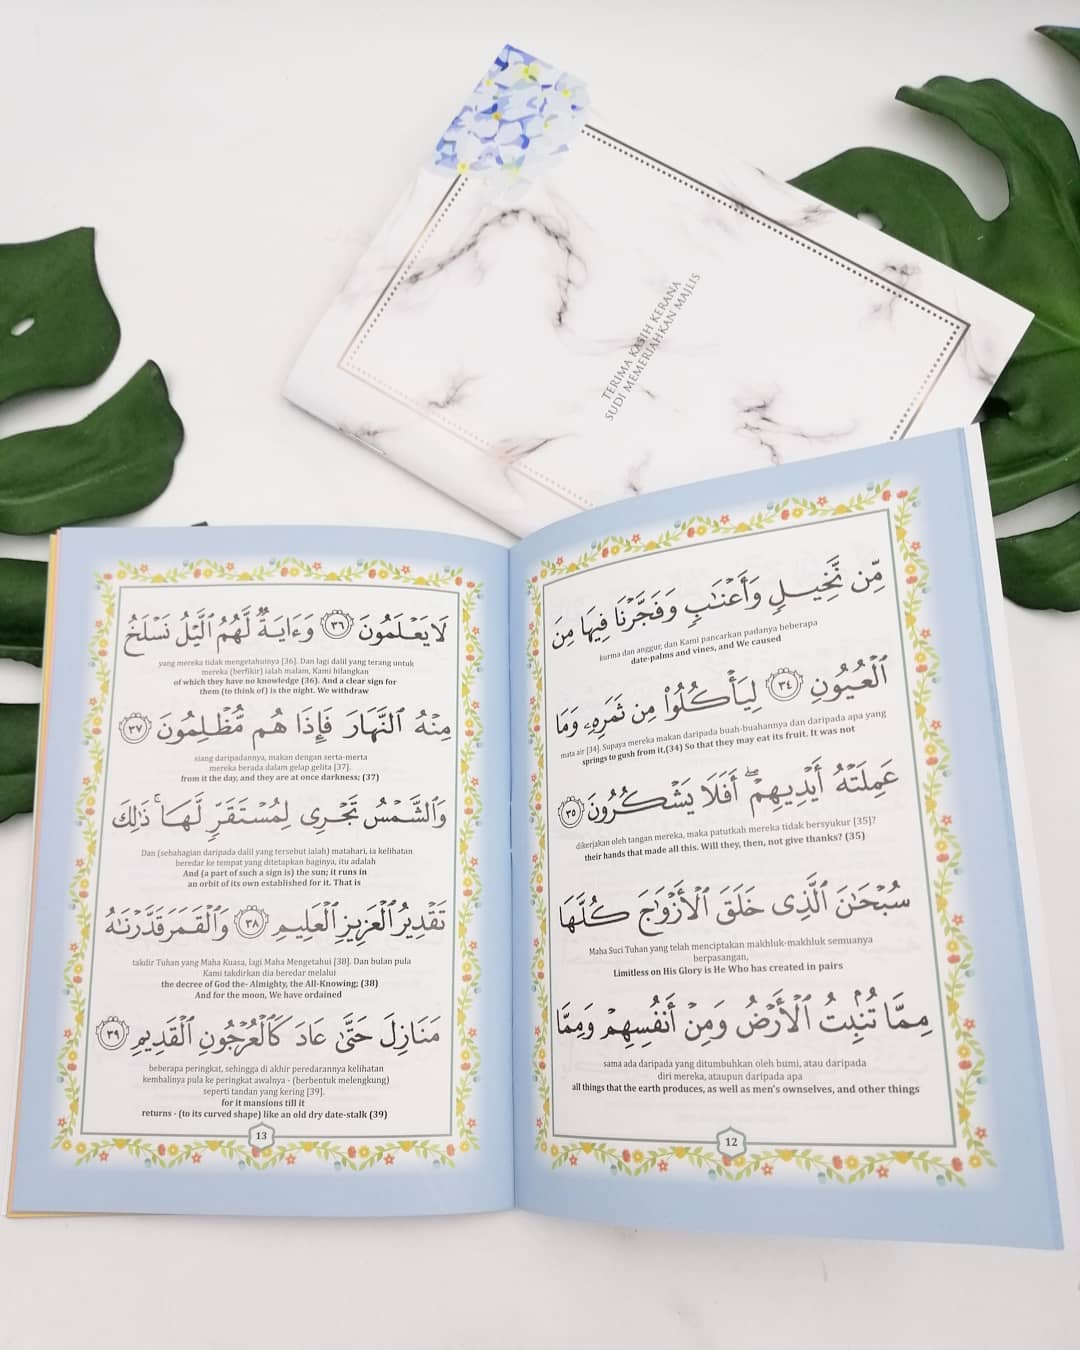 TERIMA KASIH KERANA
SUDI MEMERIAHKAN MAJLIS
مِّن نَّخِيلٍ وَأَعْنَٰبٍ وَفَجَّرْنَا فِيهَا مِنَ
kurma dan anggur, dan Kami pancarkan padanya beberapa
date-palms and vines, and We caused
ٱلْعُيُونِ ٣٤ لِيَأْكُلُوا۟ مِن ثَمَرِهِۦ وَمَا
mata air [34]. Supaya mereka makan daripada buah-buahannya dan daripada apa yang
springs to gush from it.(34) So that they may eat its fruit. It was not
عَمِلَتْهُ أَيْدِيهِمْ ۖ أَفَلَا يَشْكُرُونَ ٣٥
dikerjakan oleh tangan mereka, maka patutkah mereka tidak bersyukur [35]?
their hands that made all this. Will they, then, not give thanks? (35)
سُبْحَٰنَ ٱلَّذِى خَلَقَ ٱلْأَزْوَٰجَ كُلَّهَا
Maha Suci Tuhan yang telah menciptakan makhluk-makhluk semuanya
berpasangan,
Limitless on His Glory is He Who has created in pairs
مِمَّا تُنۢبِتُ ٱلْأَرْضُ وَمِنْ أَنفُسِهِمْ وَمِمَّا
sama ada daripada yang ditumbuhkan oleh bumi, atau daripada
diri mereka, ataupun daripada apa
all things that the earth produces, as well as men's ownselves, and other things
12
لَا يَعْلَمُونَ ٣٦ وَءَايَةٌ لَّهُمُ ٱلَّيْلُ نَسْلَخُ
yang mereka tidak mengetahuinya [36]. Dan lagi dalil yang terang untuk
mereka (berfikir) ialah malam, Kami hilangkan
of which they have no knowledge (36). And a clear sign for
them (to think of) is the night. We withdraw
مِنْهُ ٱلنَّهَارَ فَإِذَا هُم مُّظْلِمُونَ ٣٧
siang daripadanya, makan dengan serta-merta
mereka berada dalam gelap gelita [37].
from it the day, and they are at once darkness; (37)
وَٱلشَّمْسُ تَجْرِى لِمُسْتَقَرٍّ لَّهَا ۚ ذَٰلِكَ
Dan (sebahagian daripada dalil yang tersebut ialah) matahari, ia kelihatan
beredar ke tempat yang ditetapkan baginya, itu adalah
And (a part of such a sign is) the sun; it runs in
an orbit of its own established for it. That is
تَقْدِيرُ ٱلْعَزِيزِ ٱلْعَلِيمِ ٣٨ وَٱلْقَمَرَ قَدَّرْنَٰهُ
takdir Tuhan yang Maha Kuasa, lagi Maha Mengetahui [38]. Dan bulan pula
Kami takdirkan dia beredar melalui
the decree of God the- Almighty, the All-Knowing; (38)
And for the moon, We have ordained
مَنَازِلَ حَتَّىٰ عَادَ كَٱلْعُرْجُونِ ٱلْقَدِيمِ ٣٩
beberapa peringkat, sehingga di akhir peredarannya kelihatan
kembalinya pula ke peringkat awalnya - (berbentuk melengkung)
seperti tandan yang kering [39].
for it mansions till it
returns - (to its curved shape) like an old dry date-stalk (39)
13